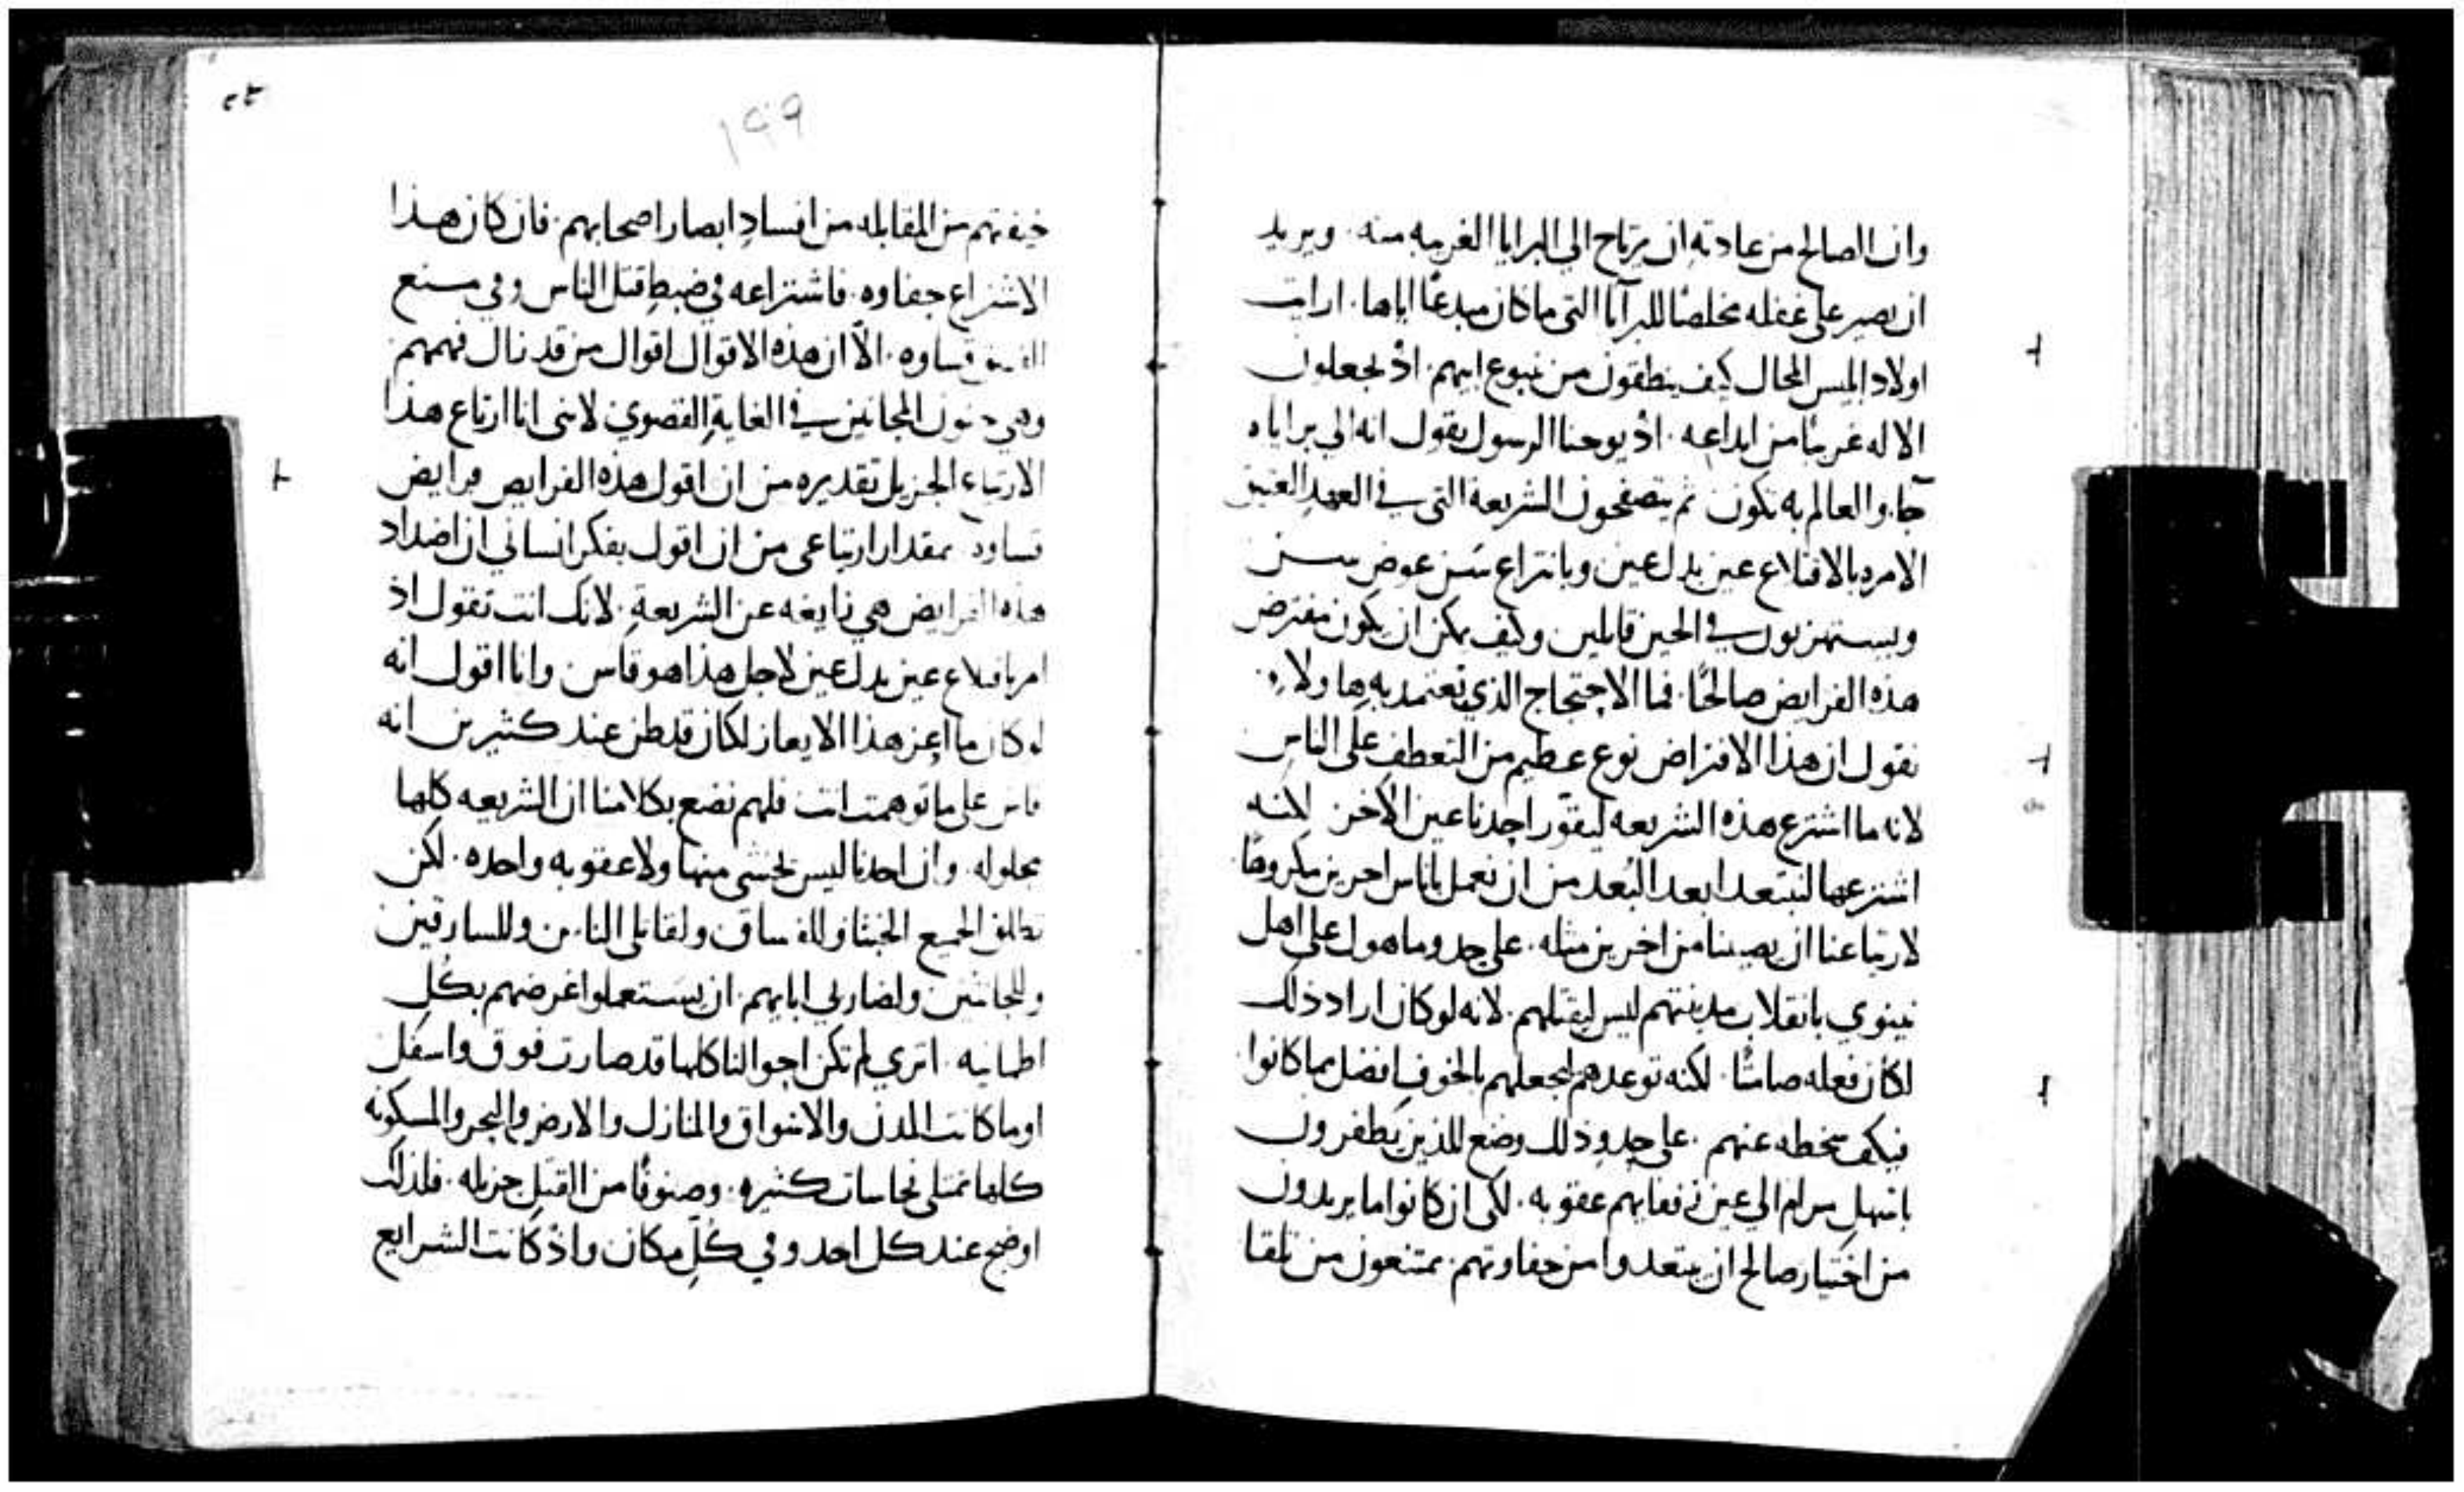 وان الصالح من عادته ان يرتاح الي البرايا الغريبه منه. ويريد
ان يصير علي غفله مخلصًا للبرآيا التي ما كان مبدعًا اياها. ارايت
اولاد ابليس المحال كيف ينطقون من نبوع ابيهم. اذ يجعلون
الاله غريبًا من ابداعه. اذ يوحنا الرسول يقول انه الي براياه
جآ. والعالم به تكون ثم يتصفحون الشريعة التي في العهد العتيق
الامره بالاقتلاع عين بدل عين وبانتزاع سن عوض سن
ويستهزيون في الحين قايلين وكيف يمكن ان يكون مفترض
هذه الفرايض صالحًا. فما الاحتجاج الذي نعتمد به هاولاء.
نقول ان هذا الافتراض نوع عظيم من التعطف علي الناس
لانه ما اشترع هذه الشريعه ليقور احدنا عين الاخر. لكنه
اشترعها لنبتعد ابعد البُعد من ان نعمل باناس اخرين مكروهًا
لارتياعنا ان يصيبنا من اخرين مثله. علي حد وما هول علي اهل
نينوي بانقلاب مدينتهم ليس ليقتلهم. لانه لو كان اراد ذلك
لكان فعله صامتًا. لكنه توعدهم ليجعلهم بالخوف افضل مما كانوا
فيكف سخطه عنهم. علي حد وذلك وضع للذين يطفرون
باسهل مرام الي عين رفقايهم عقوبه. لكي ان كانوا ما يريدون
من اختيار صالح ان يبتعدوا من جفاوتهم. يمتنعون من تلقا
١٩٩
خيفتهم من المقابله من افساد ابصار اصحابهم. فان كان هذا
الاشتراع جفاوه. فاشتراعه في ضبط قتل الناس وفي منع
الفسق قساوه. الّا ان هذه الاقوال اقوال من قد نال فهمهم
وهي جنون المجانين في الغاية القصوي لانني انا ارتاع هذا
الارتياع الجزيل تقديره من ان اقول هذه الفرايض فرايض
قساوه بمقدار ارتياعي من ان اقول بفكر انساني ان اضداد
هذه الفرايض هي زايغه عن الشريعة. لانك انت تقول اذ
امر باقتلاع عين بدل عين لاجل هذا هو قاس. وانا اقول انه
لو كان ما اعز هذا الايعاز لكان قد ظن عند كثيرين انه
قاس علي ما توهمت انت فلهم نضع بكلامنا ان الشريعه كلها
محلوله. وان احدنا ليس يخشي منها ولا عقوبه واحده. لكن
تطلق الجميع الخبثا وللفساق ولقاتلي الناس وللسارقين
وللحانثين ولضاربي اباىهم. ان يستعملوا اغرضهم بكل
اطمانيه. اتري لم تكن احوالنا كلها قد صارت فوق واسفل
اوما كانت المدن والاسواق والمنازل والارض والبحر والمسكونه
كلها تمتلي نجاسات كثيره. وصنوفًا من القتل جزيله. فلذلك
اوضح عند كل احد وفي كلّ مكان واذ كانت الشرايع